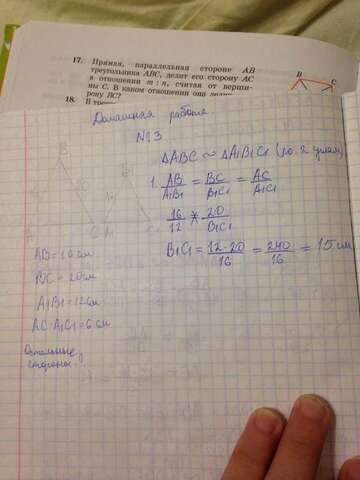 17. Прямая, параллельная стороне AB
треугольника ABC, делит его сторону AC
в отношении m : n, считая от верши-
ны C. В каком отношении она делит
рону BC?
18.
B
C
Домашняя работа
№13
ΔABC ∾ ΔA₁B₁C₁ (по 2 углам)
1. AB/A₁B₁ = BC/B₁C₁ = AC/A₁C₁
16/12 * 20/B₁C₁
B₁C₁ = 12·20/16 = 240/16 = 15 см
AB = 16 см
BC = 20 см
A₁B₁ = 12 см
AC-A₁C₁ = 6 см
Остальные
стороны